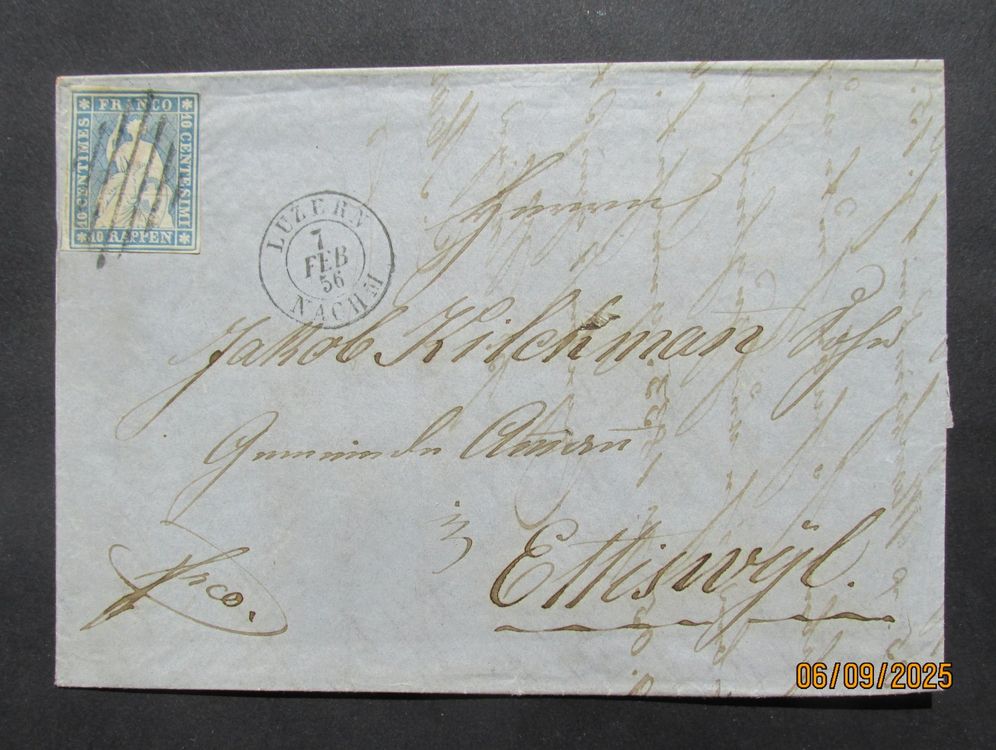 FRANCO
10 CENTIMES
10 CENTESIMI
10 RAPPEN
LUZERN
7
FEB
56
NACHM
Herrn
Jakob Kilchman Sohn
Gemeinde Aman̄
in
Ettiswÿl.
frco.
06/09/2025